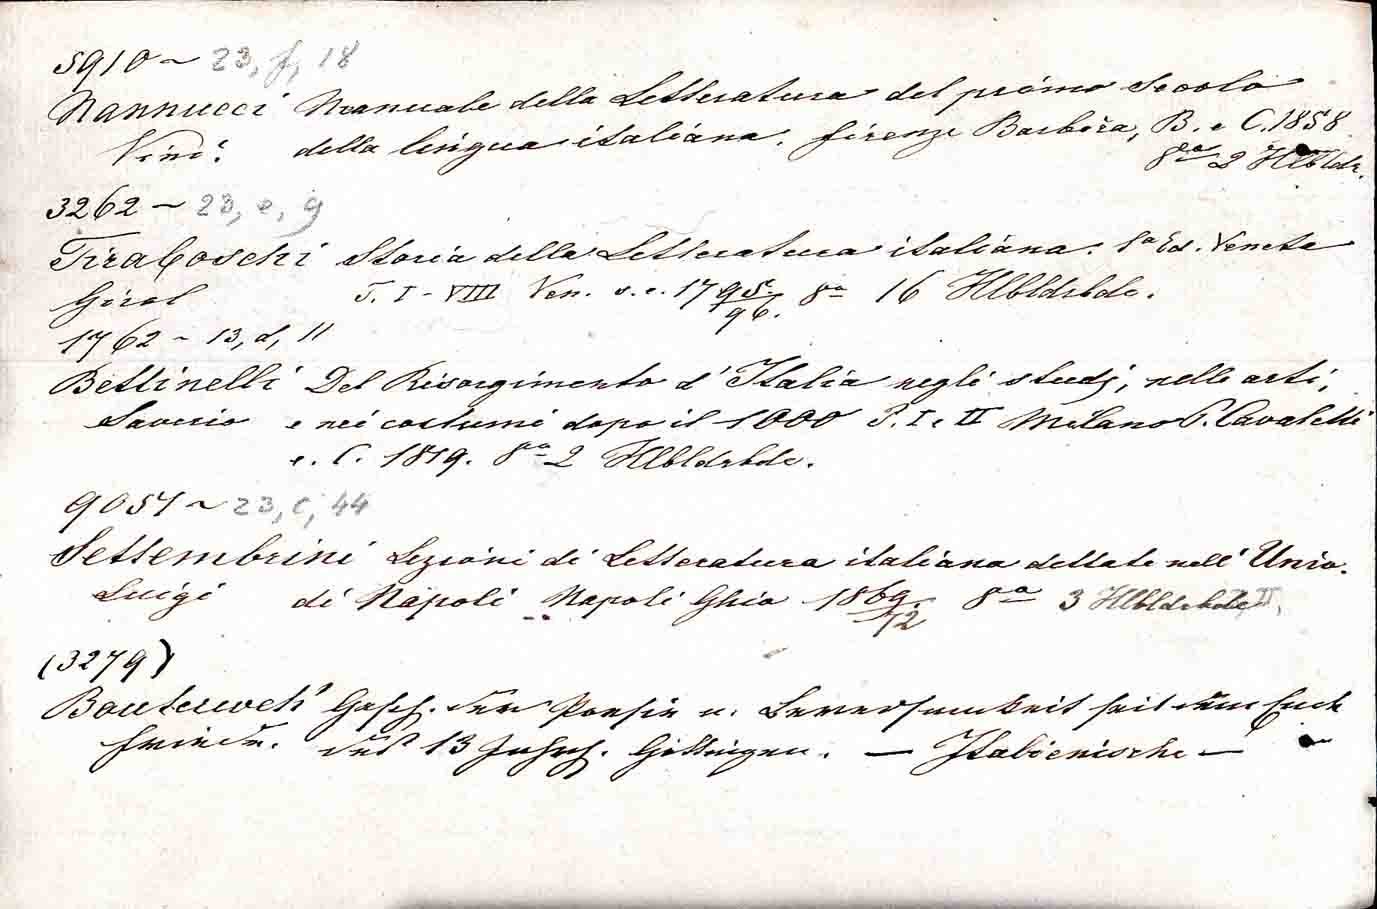 5910 ~ 23, f, 18
Nannucci Manuale della Letteratura del primo Secolo
Vinc. della lingua italiana. Firenze Barbèra, B. e C. 1858
8° 2 Hlbldr.
3262 ~ 23, e, 9
Tiraboschi Storia della Letteratura italiana. 1a Ed. Veneta
Girol T. I - VIII Ven. s. e. 1795/96. 8° 16 Hlbldrbde.
1762 ~ 13, d, 11
Bettinelli Del Risorgimento d'Italia negli studj, nelle arti,
Saverio e nei costumi dopo il 1000 P. I e II Milano P. Cavaletti
e. C. 1819. 8° 2 Hlbldrbde.
9057 ~ 23, c, 44
Settembrini Lezioni di Letteratura italiana dettate nell' Univ.
Luigi di Napoli Napoli Ghio 1869/72 8° 3 Hlbldrbde
(3279)
Bouterwek Gesch. der Poesie u. Beredsamkeit seit dem Ende
Friedr. des 13 Jahrh. Göttingen. — Italienische —